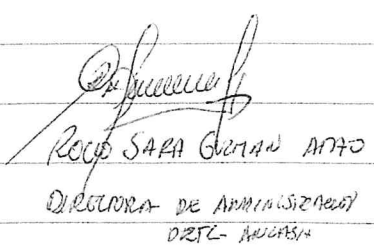 ROCIO SARA GUZMAN AMAO
DIRECTORA DE ADMINISTRACION
DZTC - ANCASH